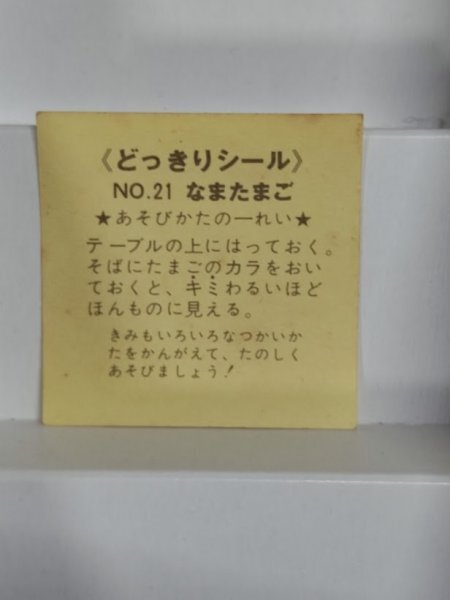 《どっきりシール》
NO.21 なまたまご
★あそびかたの一れい★
テーブルの上にはっておく。
そばにたまごのカラをおい
ておくと、キミわるいほど
ほんものに見える。
きみもいろいろなつかいか
たをかんがえて、たのしく
あそびましょう!